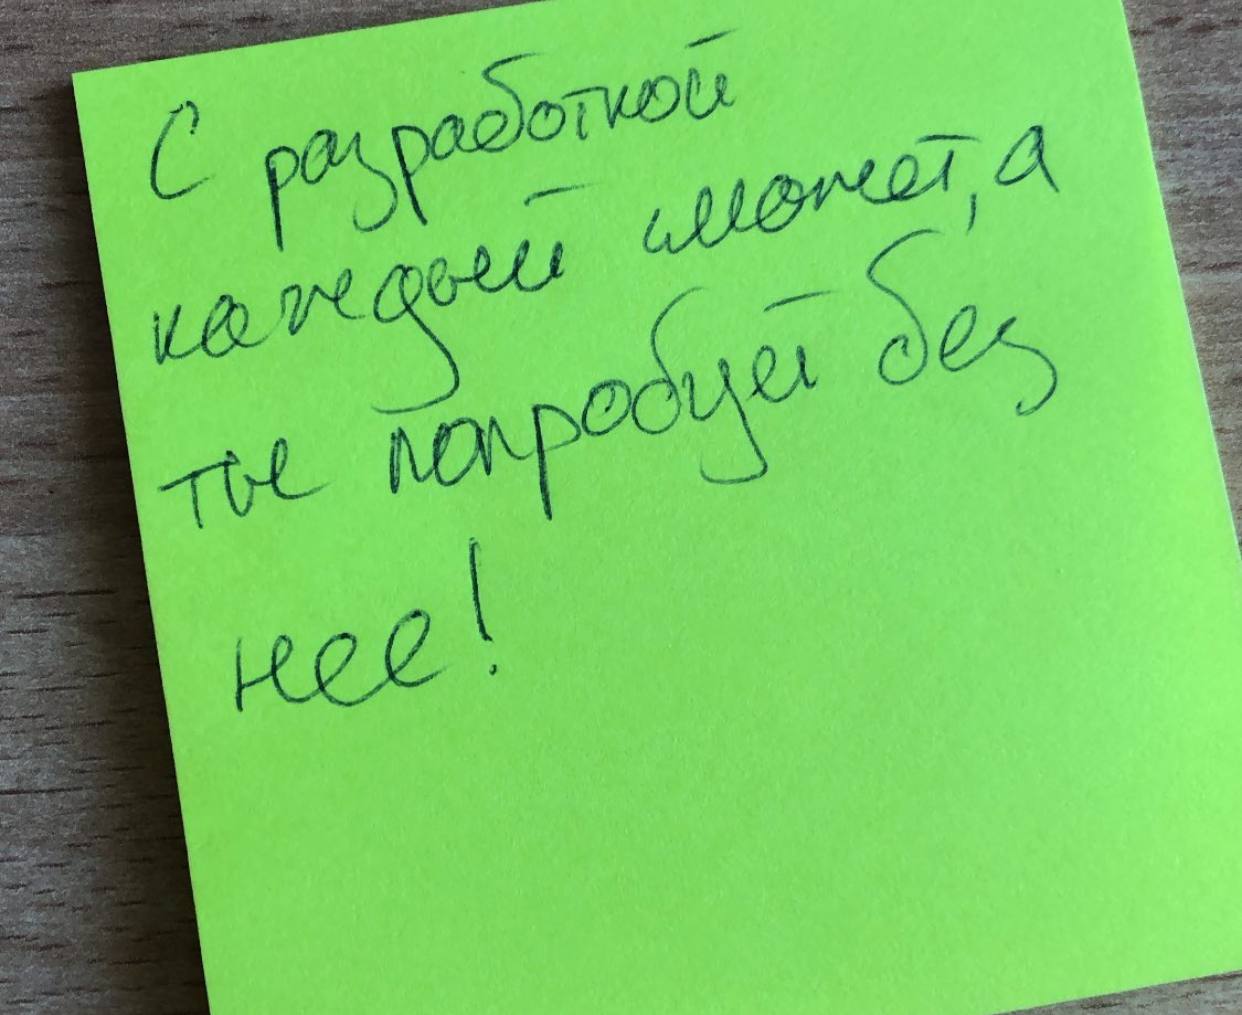 С разработкой
каждый может, а
ты попробуй без
нее!